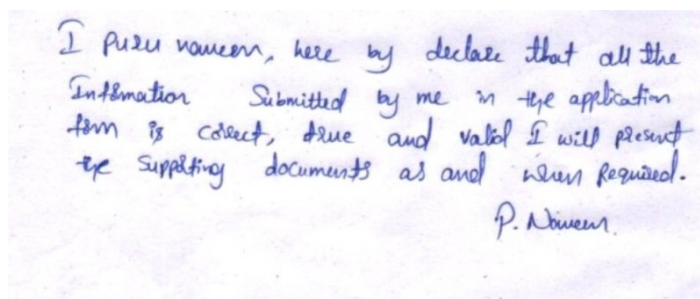 I Puru naveen, here by declare that all the
Information Submitted by me in the application
form is corect, true and valid I will present
the Supporting documents as and when Required.
P. Naveen.